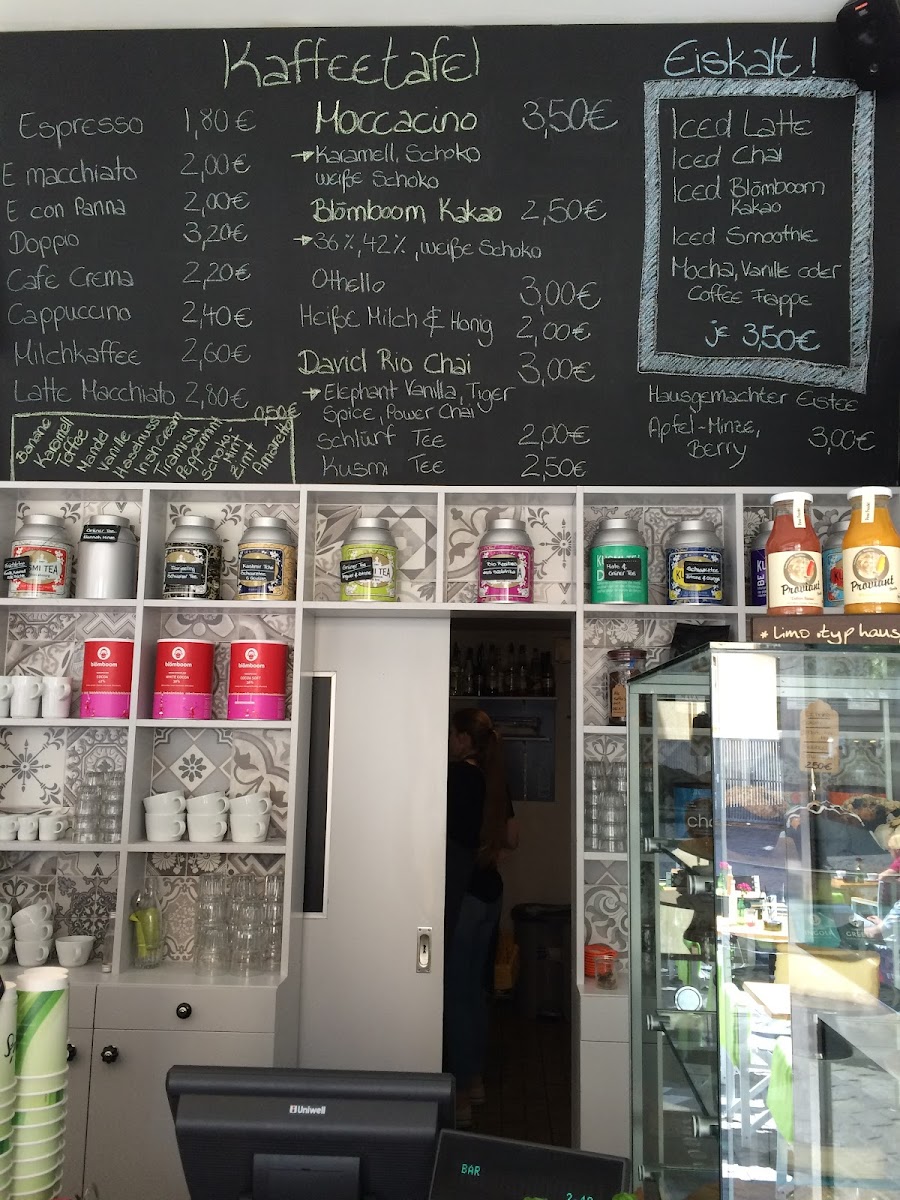 Kaffeetafel
Espresso 1,80€
E macchiato 2,00€
E con Panna 2,00€
Doppio 3,20€
Cafe Crema 2,20€
Cappuccino 2,40€
Milchkaffee 2,60€
Latte Macchiato 2,80€
0,50€
Banane
Karamell
Toffee
Mandel
Vanille
Haselnuss
Irish Cream
Tiramisu
Peppermint
Schoko
Mint
Zimt
Amaretto
Moccacino 3,50€
Karamell, Schoko
weiße Schoko
Blömboom Kakao 2,50€
36%, 42%, weiße Schoko
Othello 3,00€
Heiße Milch & Honig 2,00€
David Rio Chai 3,00€
Elephant Vanilla, Tiger
Spice, Power Chai
Schlürf Tee 2,00€
Kusmi Tee 2,50€
Eiskalt!
Iced Latte
Iced Chai
Iced Blömboom
Kakao
Iced Smoothie
Mocha, Vanille oder
Coffee Frappe
je 3,50€
Hausgemachter Eistee
Apfel-Minze,
Berry 3,00€
Grüner Tee
SMI TEA
Schwarzer Tee
TEA
Grüner Tee
Proviant
Proviant
* Limo typ haus
blömboom
COCOA
blömboom
WHITE COCOA
blömboom
COCOA SOFT
Uniwell
BAR